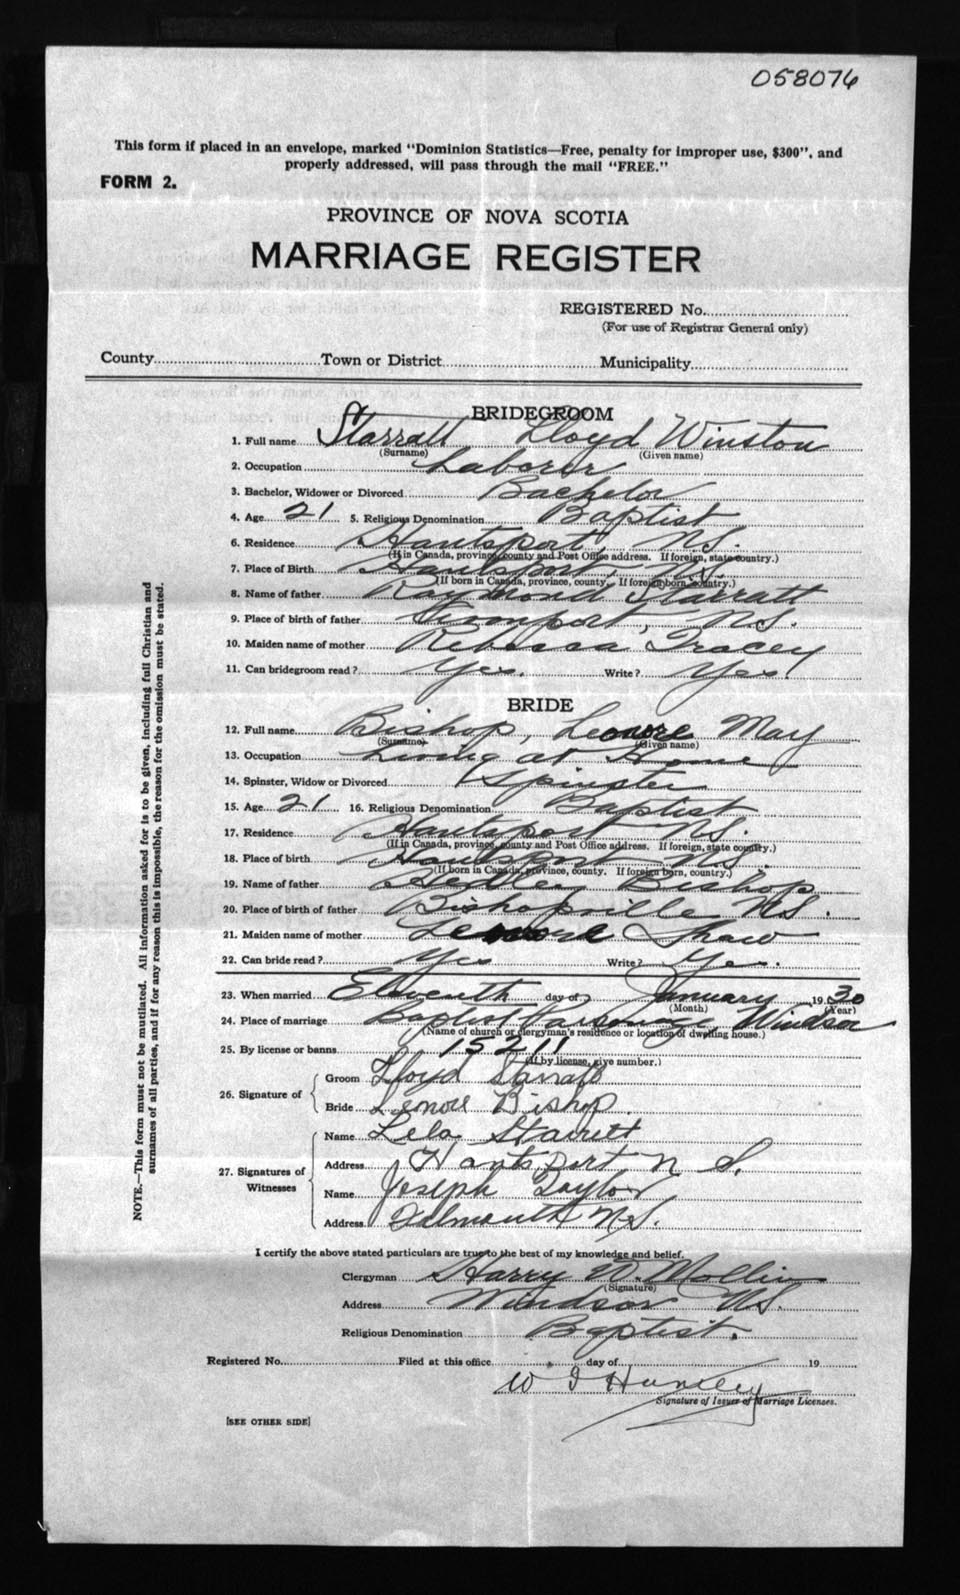 058076
This form if placed in an envelope, marked "Dominion Statistics—Free, penalty for improper use, $300", and
properly addressed, will pass through the mail "FREE."
FORM 2.
PROVINCE OF NOVA SCOTIA
MARRIAGE REGISTER
REGISTERED No.
(For use of Registrar General only)
County Town or District Municipality
BRIDEGROOM
1. Full name Starratt Lloyd Winston
(Surname) (Given name)
2. Occupation Laborer
3. Bachelor, Widower or Divorced Bachelor
4. Age 21 5. Religious Denomination Baptist
6. Residence Hantsport, N.S.
(If in Canada, province, county and Post Office address. If foreign, state country.)
7. Place of Birth Hantsport, N.S.
(If born in Canada, province, county. If foreign born, country.)
8. Name of father Raymond Starratt
9. Place of birth of father N.S.
10. Maiden name of mother Rebecca Tracey
11. Can bridegroom read? Yes. Write? Yes!
BRIDE
12. Full name Bishop, Lenore May
(Surname) (Given name)
13. Occupation Living at Home
14. Spinster, Widow or Divorced Spinster
15. Age 21 16. Religious Denomination Baptist
17. Residence Hantsport N.S.
(If in Canada, province, county and Post Office address. If foreign, state country.)
18. Place of birth Hantsport N.S.
(If born in Canada, province, county. If foreign born, country.)
19. Name of father Hedley Bishop
20. Place of birth of father Bishopville N.S.
21. Maiden name of mother Lenore Shaw
22. Can bride read? Yes Write? Yes.
23. When married Eleventh day of January 1930
(Month) (Year)
24. Place of marriage Baptist Parsonage, Windsor
(Name of church or clergyman's residence or location of dwelling house.)
25. By license or banns 15211
(If by license, give number.)
26. Signature of Groom Lloyd Starratt
Bride Lenore Bishop.
27. Signatures of Witnesses Name Lela Starrett
Address Hantsport N S.
Name Joseph Taylor
Address Falmouth N.S.
I certify the above stated particulars are true to the best of my knowledge and belief.
Clergyman Harry W. Mollins
(Signature)
Address Windsor N.S.
Religious Denomination Baptist.
Registered No. Filed at this office day of 19
W I Huntley
Signature of Issuer of Marriage Licenses.
[SEE OTHER SIDE]
NOTE.—This form must not be mutilated. All information asked for is to be given, including full Christian and
surnames of all parties, and if for any reason this is impossible, the reason for the omission must be stated.